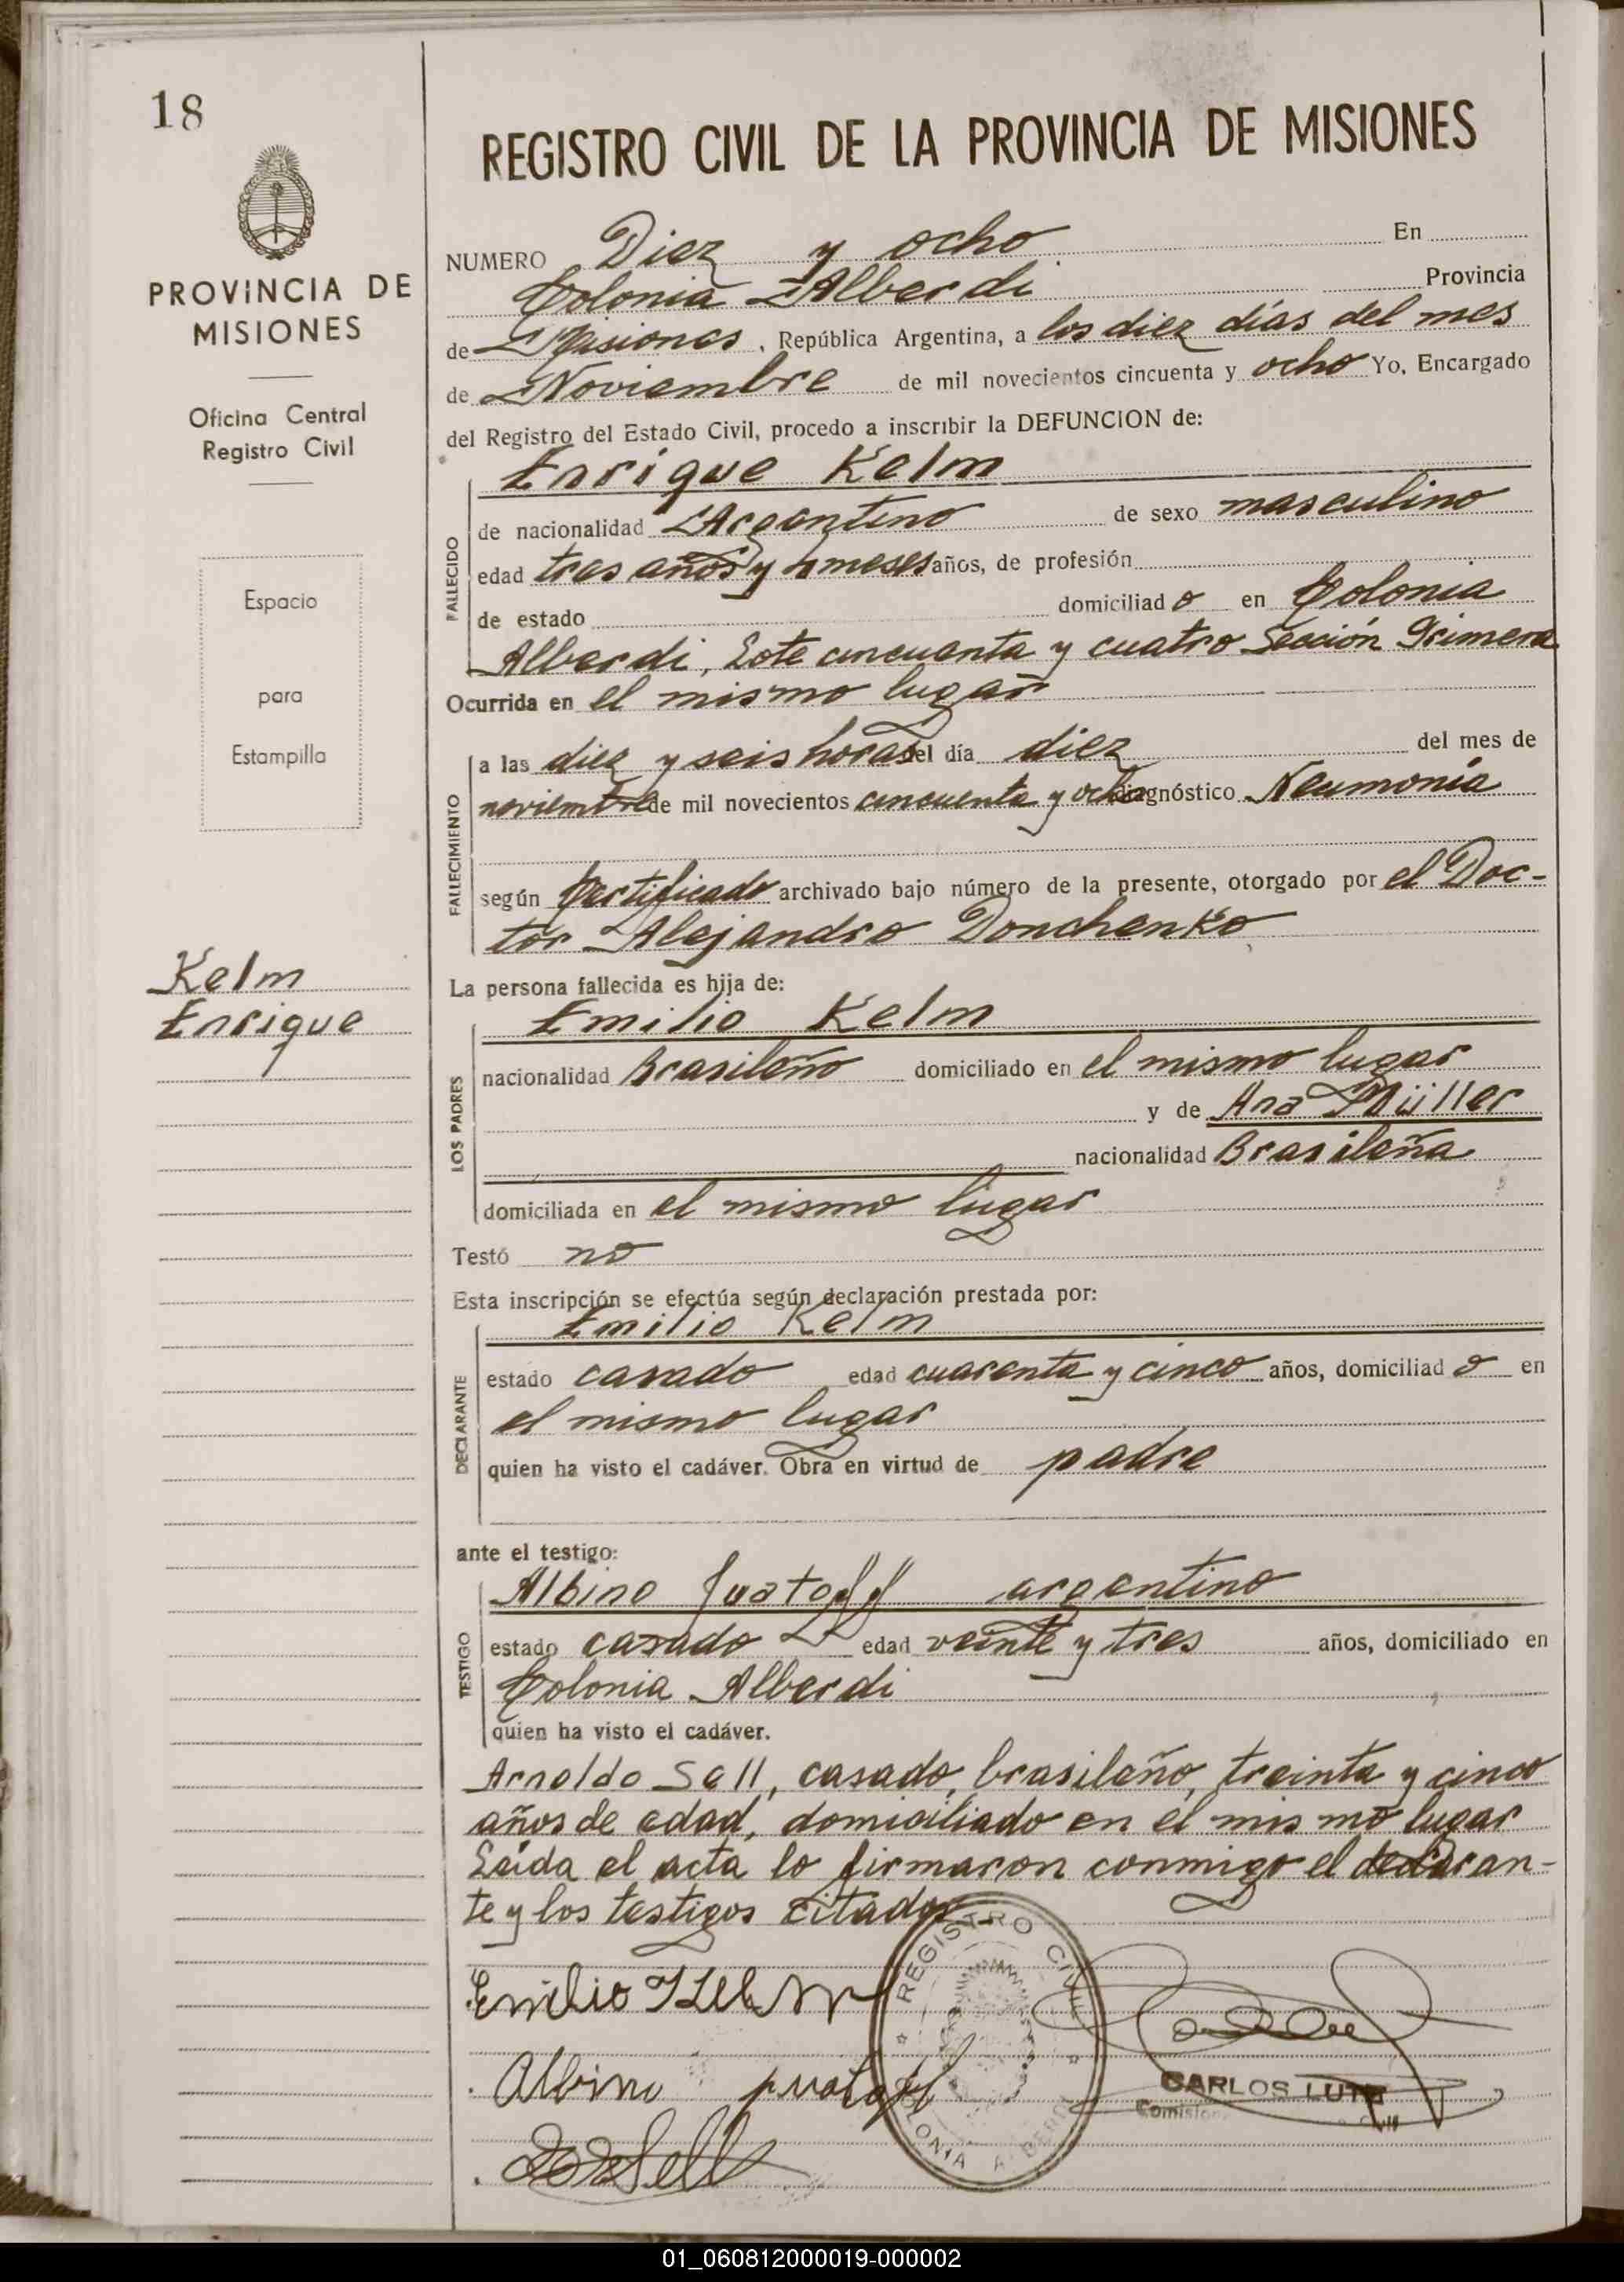 18
PROVINCIA DE
MISIONES
Oficina Central
Registro Civil
Espacio
para
Estampilla
Kelm
Enrique
REGISTRO CIVIL DE LA PROVINCIA DE MISIONES
NUMERO Diez y ocho En
Colonia Alberdi Provincia
de Misiones, República Argentina, a los diez días del mes
de Noviembre de mil novecientos cincuenta y ocho Yo, Encargado
del Registro del Estado Civil, procedo a inscribir la DEFUNCION de:
Enrique Kelm
FALLECIDO
de nacionalidad Argentino de sexo masculino
edad tres años y 4 meses años, de profesión
de estado domiciliad o en Colonia
Alberdi, Lote cincuenta y cuatro Sección Primera
Ocurrida en el mismo lugar
FALLECIMIENTO
a las diez y seis horas del día diez del mes de
noviembre de mil novecientos cincuenta y ocho diagnóstico Neumonía
según Certificado archivado bajo número de la presente, otorgado por el Doc-
tor Alejandro Donchenko
La persona fallecida es hija de:
Emilio Kelm
LOS PADRES
nacionalidad Brasileño domiciliado en el mismo lugar
y de Ana Müller
nacionalidad Brasileña
domiciliada en el mismo lugar
Testó no
Esta inscripción se efectúa según declaración prestada por:
Emilio Kelm
DECLARANTE
estado casado edad cuarenta y cinco años, domiciliad o en
el mismo lugar
quien ha visto el cadáver. Obra en virtud de padre
ante el testigo:
Albino argentino
TESTIGO
estado casado edad veinte y tres años, domiciliado en
Colonia Alberdi
quien ha visto el cadáver.
Arnoldo Sell, casado, brasileño, treinta y cinco
años de edad, domiciliado en el mismo lugar
Leida el acta lo firmaron conmigo el declaran-
te y los testigos citados
Emilio Kelm
Albino
Sell
REGISTRO CIVIL
COLONIA ALBERDI
CARLOS LUTZ
01_060812000019-000002